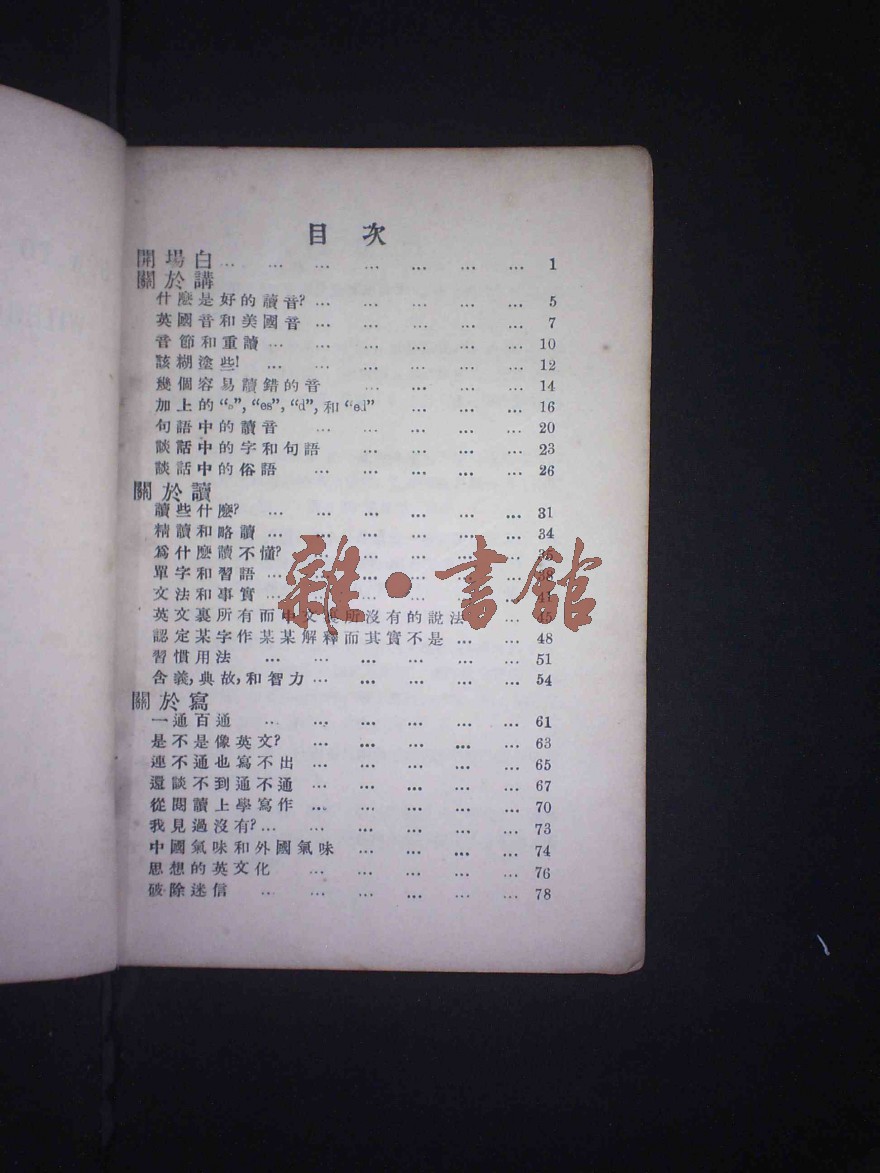 目次
開場白 ... ... ... ... ... ... ... 1
關於講
什麼是好的讀音? ... ... ... ... ... 5
英國音和美國音 ... ... ... ... ... 7
音節和重讀 ... ... ... ... ... ... 10
該糊塗些! ... ... ... ... ... ... 12
幾個容易讀錯的音 ... ... ... ... 14
加上的“s”, “es”, “d”, 和 “ed” ... ... ... 16
句語中的讀音 ... ... ... ... ... 20
談話中的字和句語 ... ... ... ... 23
談話中的俗語 ... ... ... ... ... 26
關於讀
讀些什麼? ... ... ... ... ... ... 31
精讀和略讀 ... ... ... ... ... ... 34
爲什麼讀不懂? ... ... ... ... ... 35
單字和習語 ... ... ... ... ... ... 38
文法和事實 ... ... ... ... ... ... 41
英文裏所有而中文裏所沒有的說法 ... ... 45
認定某字作某某解釋而其實不是 ... ... 48
習慣用法 ... ... ... ... ... ... 51
含義,典故,和智力 ... ... ... ... ... 54
關於寫
一通百通 ... ... ... ... ... ... 61
是不是像英文? ... ... ... ... ... 63
連不通也寫不出 ... ... ... ... ... 65
還談不到通不通 ... ... ... ... ... 67
從閱讀上學寫作 ... ... ... ... ... 70
我見過沒有? ... ... ... ... ... ... 73
中國氣味和外國氣味 ... ... ... ... 74
思想的英文化 ... ... ... ... ... 76
破除迷信 ... ... ... ... ... ... 78
雜·書館